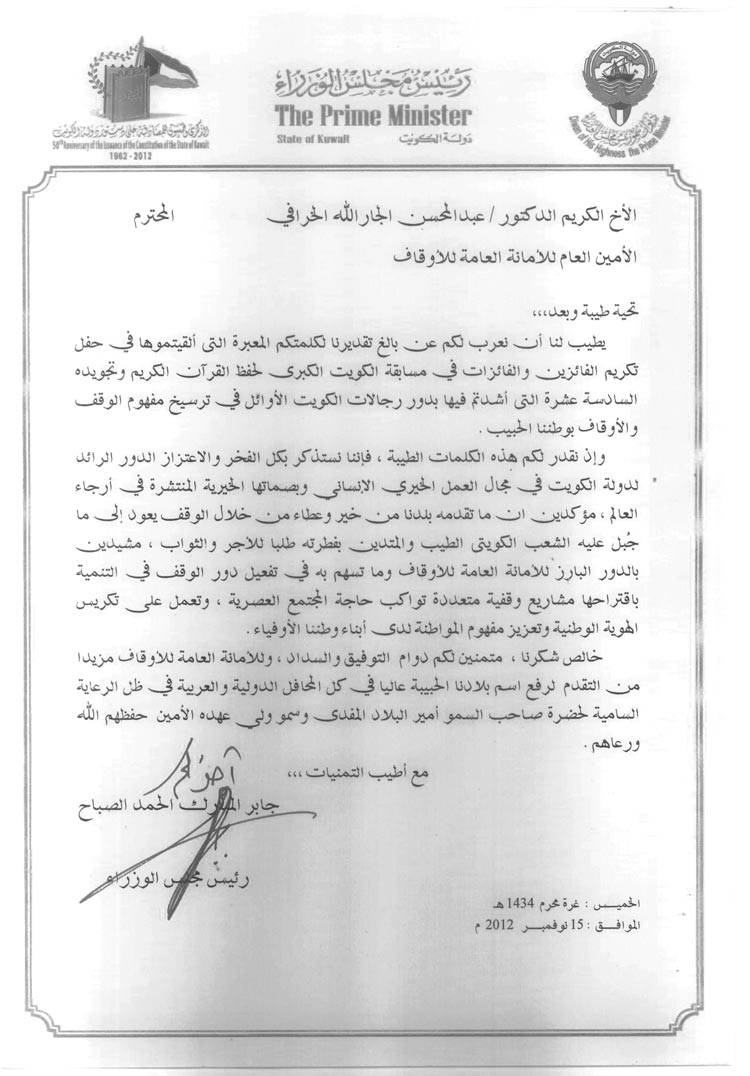 رئيس مجلس الوزراء
The Prime Minister
State of Kuwait دولة الكويت
50th Anniversary of the Issuance of the Constitution of the State of Kuwait
1962 - 2012
Diwan of His Highness the Prime Minister
الأخ الكريم الدكتور / عبدالمحسن الجارالله الخرافي المحترم
الأمين العام للأمانة العامة للأوقاف
تحية طيبة وبعد،،،
يطيب لنا أن نعرب لكم عن بالغ تقديرنا لكلمتكم المعبرة التى ألقيتموها في حفل
تكريم الفائزين والفائزات في مسابقة الكويت الكبرى لحفظ القرآن الكريم وتجويده
السادسة عشرة التى أشدتم فيها بدور رجالات الكويت الأوائل في ترسيخ مفهوم الوقف
والأوقاف بوطننا الحبيب .
وإذ نقدر لكم هذه الكلمات الطيبة ، فإننا نستذكر بكل الفخر والاعتزاز الدور الرائد
لدولة الكويت في مجال العمل الخيري الإنساني وبصماتها الخيرية المنتشرة في أرجاء
العالم ، مؤكدين ان ما تقدمه بلدنا من خير وعطاء من خلال الوقف يعود إلى ما
جُبل عليه الشعب الكويتى الطيب والمتدين بفطرته طلبا للأجر والثواب ، مشيدين
بالدور البارز للأمانة العامة للأوقاف وما تسهم به في تفعيل دور الوقف في التنمية
باقتراحها مشاريع وقفية متعددة تواكب حاجة المجتمع العصرية ، وتعمل على تكريس
الهوية الوطنية وتعزيز مفهوم المواطنة لدى أبناء وطننا الأوفياء .
خالص شكرنا ، متمنين لكم دوام التوفيق والسداد ، وللأمانة العامة للأوقاف مزيدا
من التقدم لرفع اسم بلادنا الحبيبة عاليا في كل المحافل الدولية والعربية في ظل الرعاية
السامية لحضرة صاحب السمو أمير البلاد المفدى وسمو ولي عهده الأمين حفظهم الله
ورعاهم .
مع أطيب التمنيات ،،،
أخوكم
جابر المبارك الحمد الصباح
رئيس مجلس الوزراء
الخميـس : غرة محرم 1434 هـ
الموافق : 15 نوفمبـر 2012 م